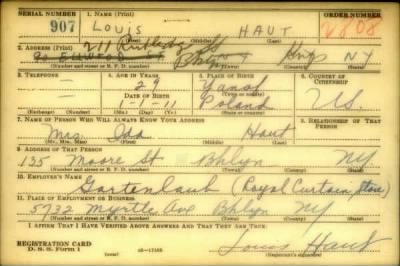 SERIAL NUMBER 1. NAME (Print) ORDER NUMBER
907 LOUIS HAUT 2808
(First) (Middle) (Last)
2. ADDRESS (Print) 211 Rutledge St
Bklyn Kings NY
(Number and street or R. F. D. number) (Town) (County) (State)
3. TELEPHONE 4. AGE IN YEARS 5. PLACE OF BIRTH 6. COUNTRY OF CITIZENSHIP
29
DATE OF BIRTH (Town or county)
1-1-11 Poland U.S.
(Exchange) (Number) (Mo.) (Day) (Yr.) (State or country)
7. NAME OF PERSON WHO WILL ALWAYS KNOW YOUR ADDRESS 8. RELATIONSHIP OF THAT PERSON
Mrs. Ida Haut
(Mr., Mrs., Miss) (First) (Middle) (Last)
9. ADDRESS OF THAT PERSON
135 Moore St Bklyn NY
(Number and street or R. F. D. number) (Town) (County) (State)
10. EMPLOYER'S NAME
Gartenlaub (Royal Curtain Store)
11. PLACE OF EMPLOYMENT OR BUSINESS
5732 Myrtle Ave Bklyn NY
(Number and street or R. F. D. number) (Town) (County) (State)
I AFFIRM THAT I HAVE VERIFIED ABOVE ANSWERS AND THAT THEY ARE TRUE.
REGISTRATION CARD
D. S. S. Form 1 Louis Haut
(Registrant's signature)